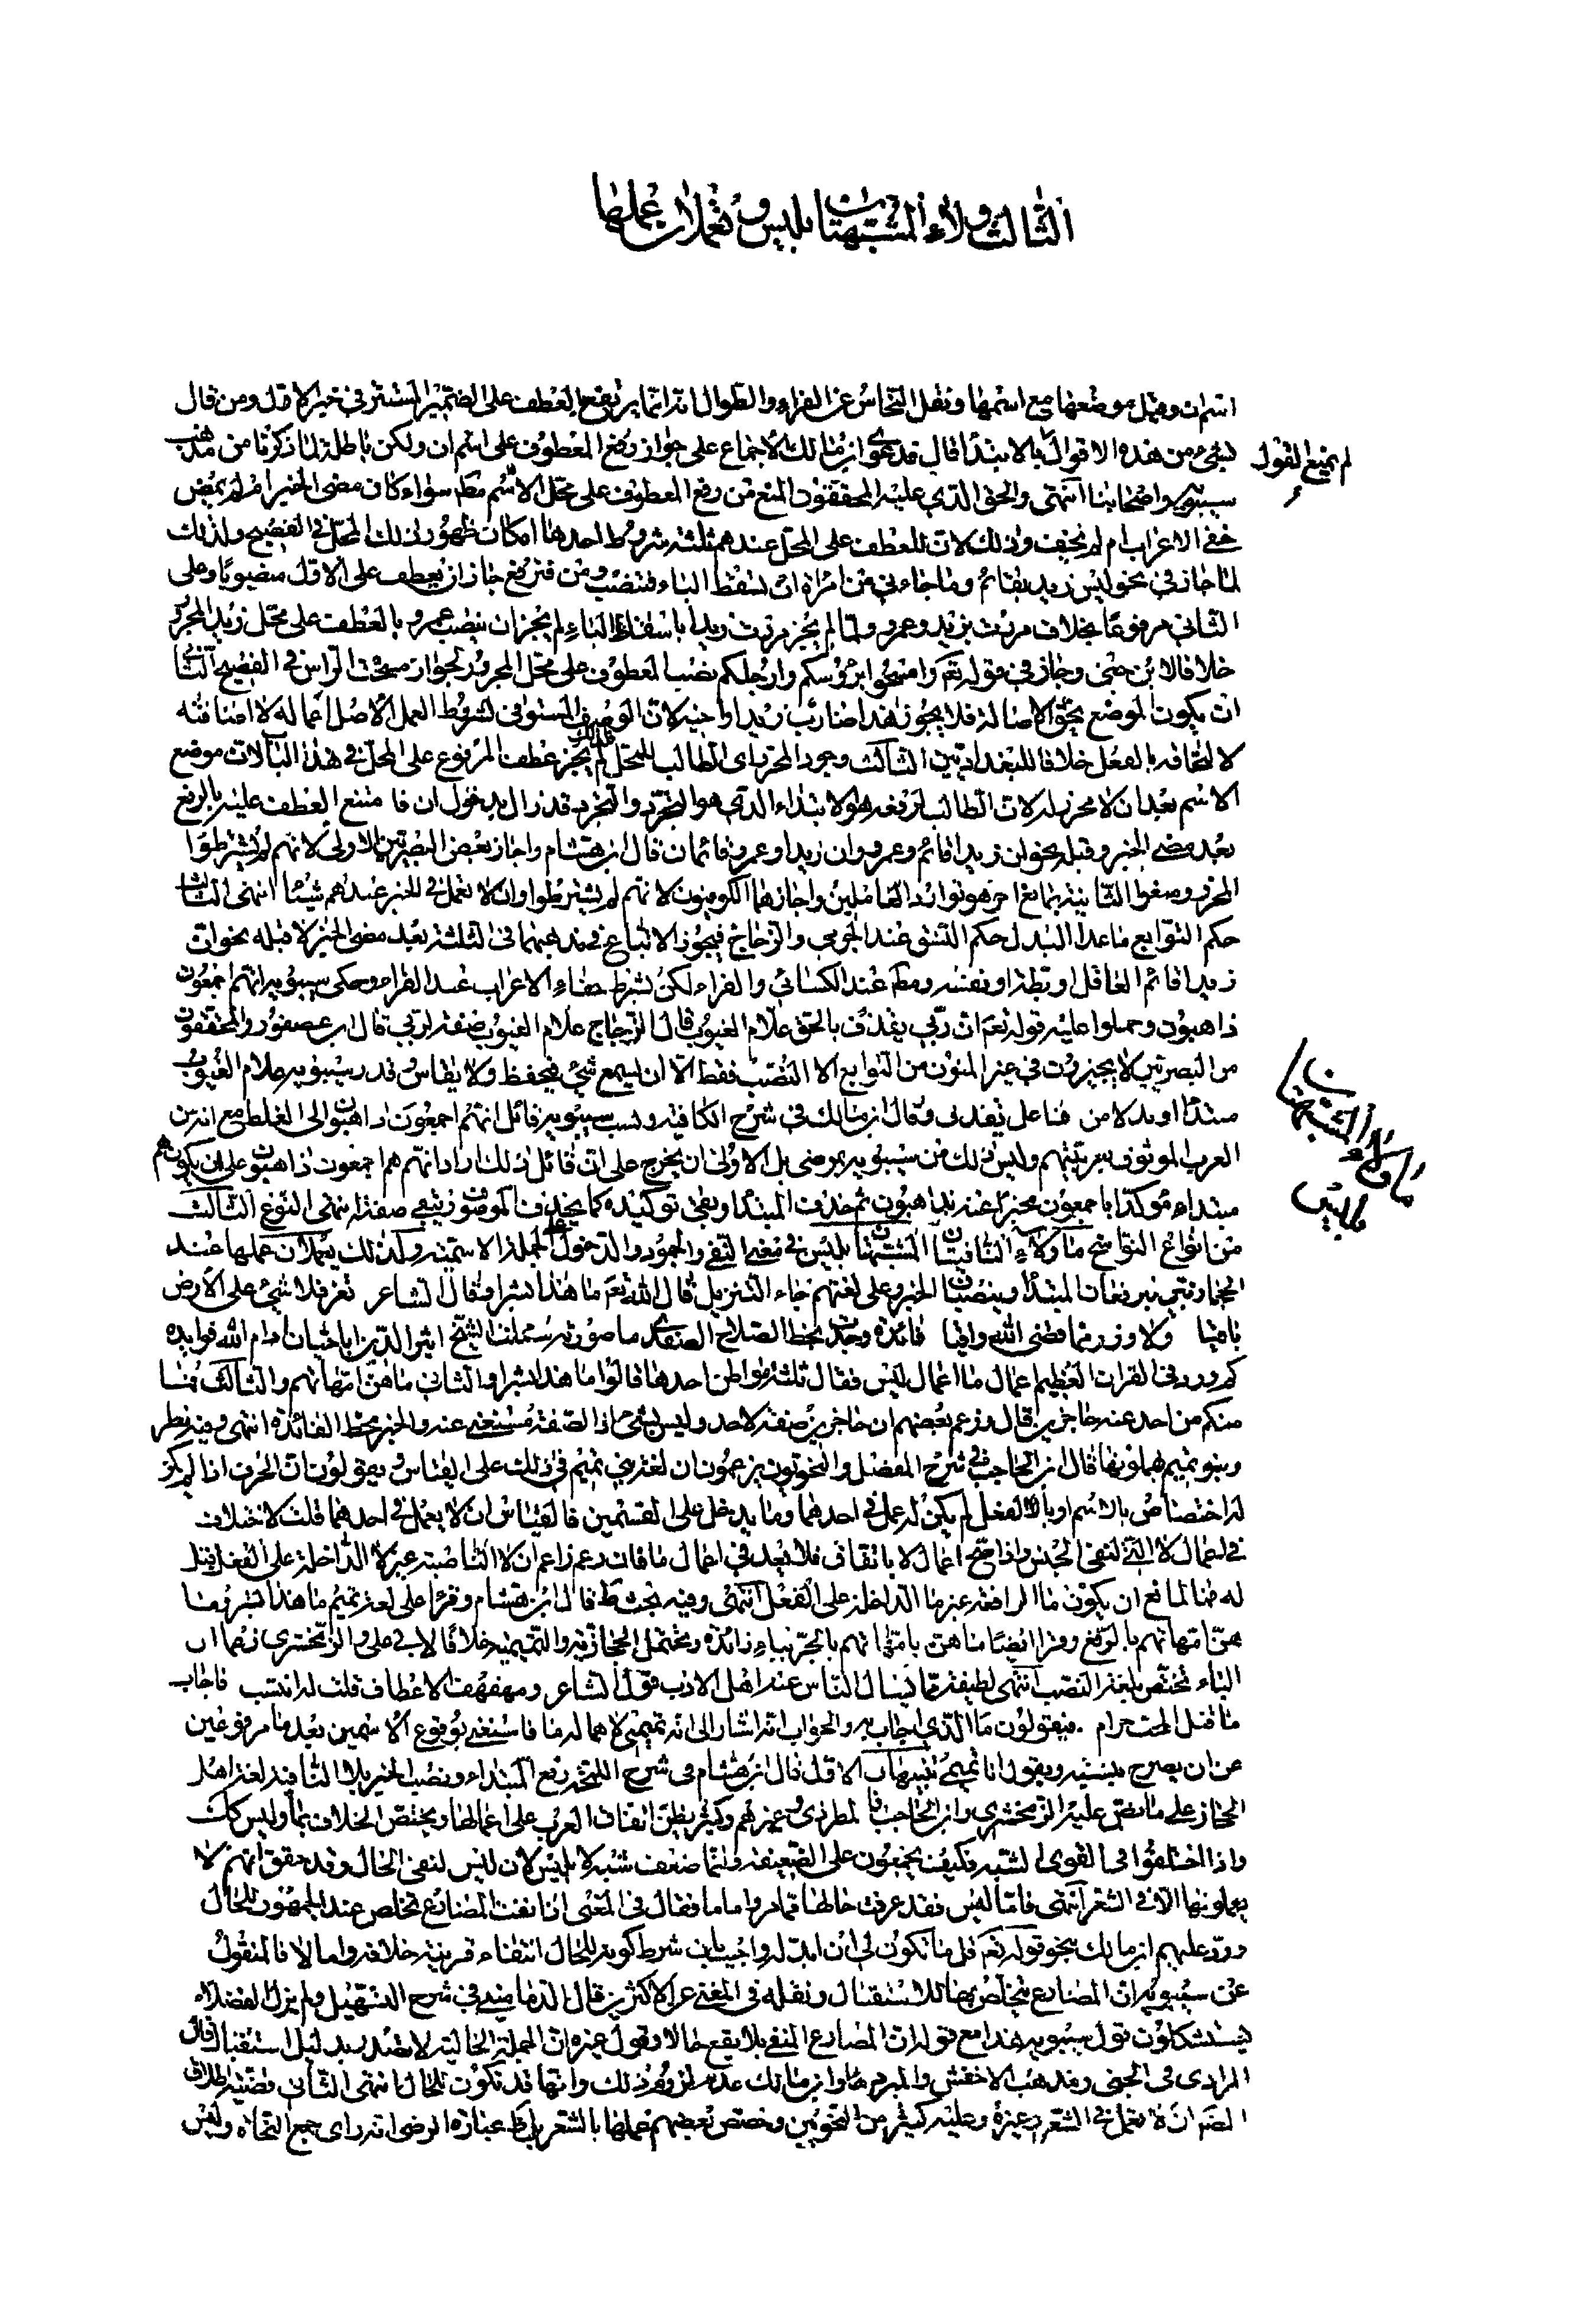 الثالث ما ولاء المشبهتان بليس وتعملان عملها
اسم ان وقيل موضعها مع اسمها ونقل النحاس عن الفراء والطوال انه انما يرتفع بالعطف على الضمير المستتر في خبر الاول ومن قال
بشيء من هذه الاقوال بالابتداء قال قد دعوى ابن مالك الاجماع على جواز رفع المعطوف على اسم ان ولكن باطلة لما ذكرنا من مذهب
لم يمنع القول
سيبويه واصحابنا انتهى والحق الذي عليه المحققون المنع من رفع المعطوف على محل الاسم مط سواء كان مضى الخبر ام لم يمض
خفي الاعراب ام لم يخف وذلك لان للعطف على المحل عندهم ثلثة شروط احدها امكان ظهور ذلك المحل في الفصيح ولذلك
لما جاز في نحو ليس زيد بقائم وما جاءني من امراة ان تسقط الباء فتنصب ومن فترفع جاز ان يعطف على الاول منصوبا وعلى
الثاني مرفوعا بخلاف مررت بزيد وعمرو ولما لم يجز مررت زيدا باسقاط الباء لم يجز ان ينصب عمرو بالعطف على محل زيد المجرور
خلافا لابن جنى وجاز في قوله تعم وامسحوا برؤسكم وارجلكم نصب المعطوف على محل المجرور لجواز مسحت الراس في الفصيح الثاني
ان يكون الموضع بحق الاصالة فلا يجوز هذا ضارب زيد او اخيه لان الوصف المستوفى لشروط العمل الاصل اعماله لا اضافته
لالتحاقه بالفعل خلافا للبغداديين الثالث وجود المحرز اى الطالب للمحل فلذلك لم يجز عطف المرفوع على المحل في هذا الباب لان موضع
الاسم بعد ان لا محرز له لان الطالب لرفعه هو الابتداء الذي هو التجرد والتجرد قد زال بدخول ان فامتنع العطف عليه بالرفع
بعد مضى الخبر وقبله نحو ان زيدا قائم وعمرو وان زيدا وعمرو قائمان قال ابن هشام واجاز بعض البصريين الاولى لانهم لم يشترطوا
المحرز ومنعوا الثانية لمانع اخر هو توارد العاملين واجازهما الكوفيون لانهم لم يشترطوا وان لا تعمل في الخبر عندهم شيئا انتهى الثالث
حكم التوابع ما عدا البدل حكم النسق عند الجرمي والزجاج فيجوز الاتباع في مذهبهما في الثلثة بعد مضى الخبر لا قبله نحو ان
زيدا قائم العاقل او بطة او نفسه ومط عند الكسائي والفراء لكن بشرط خفاء الاعراب عند الفراء وحكى سيبويه انهم اجمعون
ذاهبون وحملوا عليه قوله تعم ان ربي يقذف بالحق علام الغيوب قال الزجاج علام الغيوب صفة لربي قال ابن عصفور والمحققون
من البصريين لا يجيزون في غير المنون من التوابع الا النصب فقط الا ان يسمع شيء فيحفظ ولا يقاس وقدر سيبويه علام الغيوب
مبتدا او بدلا من فاعل يقذف وقال ابن مالك في شرح الكافية ونسب سيبويه قائل انهم اجمعون ذاهبون الى الغلط مع انه من
العرب الموثوق بعربيتهم وليس ذلك من سيبويه بمرضي بل الاولى ان يخرج على ان قائل ذلك اراد انهم هم اجمعون ذاهبون على ان يكون هم
مبتدأ مؤكدا باجمعون مخبرا عنه بذاهبون ثم حذف المبتدا وبقى توكيده كما يحذف الموصوف وتبقى صفته انتهى النوع الثالث
من انواع النواسخ ما ولاء النافيتان المشبهتان بليس في معنى النفي والجمود والدخول على الجملة الاسمية وكذلك يعملان عملها عند
ما ولاء المشبهتان بليس
الحجازيين فيرفعان المبتدا وينصبان الخبر وعلى لغتهم جاء التنزيل قال الله تعم ما هذا بشرا وقال الشاعر تعز فلا شيء على الارض
باقيا ولا وزر مما قضى الله واقيا فائدة وجدت بخط الصلاح الصفدي ما صورته سئلت الشيخ اثير الدين ابا حيان ادام الله فوايده
كم ورد في القران العظيم اعمال ما اعمال ليس فقال ثلثة مواطن احدها قالوا ما هذا بشرا والثاني ما هن امهاتهم والثالث فما
منكم من احد عنه حاجزين قال وزعم بعضهم ان حاجزين صفة لاحد وليس بشيء اذ الصفة مستغنى عنه والخبر محط الفائدة انتهى وفيه نظر
وبنو تميم يهملونها قال ابن الحاجب في شرح المفصل والنحويون يزعمون ان لغة بني تميم في ذلك على القياس ويقولون ان الحرف اذا لم يكن
له اختصاص بالاسم او بالفعل لم يكن له عمل في احدهما وما يدخل على القسمين فالقياس ان لا يعمل في احدهما قلت لا خلاف
في اعمال لا التي لنفى الجنس واذا صح اعمال لا باتفاق فلا بعد في اعمال ما فان زعم زاعم ان لا الناصبة غير لا الداخلة على الفعل قيل
له فما المانع ان يكون ما الرافعة غير ما الداخلة على الفعل انتهى وفيه بحث ط قال ابن هشام وقرا على لغة تميم ما هذا بشر وما
هن امهاتهم بالرفع وقرا ايضا ما هن بامهاتهم بالجر بباء زائدة ويحتمل الحجازية والتميمية خلافا لابي علي والزمخشري زعما ان
الباء تختص بلغة النصب انتهى لطيفة مما يسال الناس عنه اهل الادب قول الشاعر ومهفهف الاعطاف قلت له انتسب فاجاب
ما قتل المحب حرام فيقولون ما الذي اجاب به والجواب انه اشار الى انه تميمي لاهماله ما فاستغنى بوقوع الاسمين بعد ما مرفوعين
عن ان يصرح بنسبه ويقول انا تميمي تنبيهات الاول قال ابن هشام في شرح اللمحة رفع المبتداء ونصب الخبر بلا النافية لغة اهل
الحجاز على ما نص عليه الزمخشري وابن الحاجب والمطرزي وغيرهم وكثير يظن اتفاق العرب على اعمالها ويختص الخلاف بما وليس كك
واذا اختلفوا في القوى الشبه فكيف يجمعون على الضعيفة وانما ضعف شبه لا بليس لان ليس لنفى الحال وقد حقق انهم لا
يعملونها الا في الشعر انتهى فاما ليس فقد عرفت حالها فما مر واما ما فقال في المغنى اذا نفت المضارع تخلص عند الجمهور للحال
ورد عليهم ابن مالك بنحو قوله تعم قل ما يكون لي ان ابدله واجيب بان شرط كونه للحال انتفاء قرينة خلافه واما لا فالمنقول
عن سيبويه ان المضارع يتخلص بها للاستقبال ونقله في المغنى عن الاكثرين قال الدماميني في شرح التسهيل ولم يزل الفضلاء
يستشكلون قول سيبويه هذا مع قوله ان المضارع المنفي بلا يقع حالا وقول غيره ان الجملة الحالية لا تصدر بدليل استقبال قال
المرادي في الجنى ومذهب الاخفش والمبرد وابن مالك عدم لزوم ذلك وانها قد تكون للحال انتهى الثاني قضية اطلاق
المص ان لا تعمل في الشعر وغيره وعليه كثير من النحويين وخصص بعضهم عملها بالشعر بل ظ عبارة الرضى انه راى جمع النحاة وليس